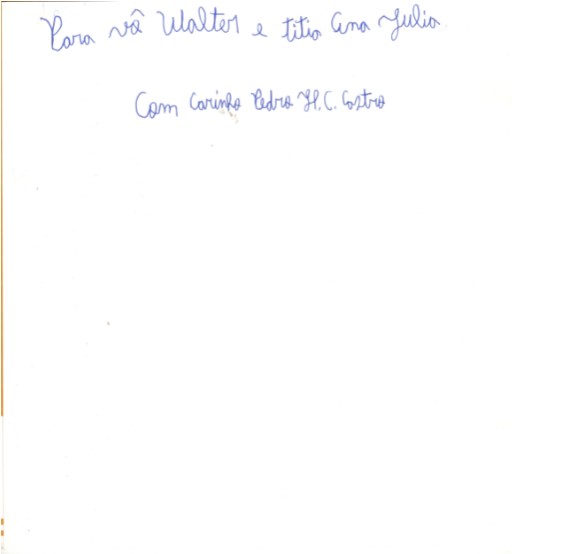 Para vô Walter e titia Ana Julia
Com Carinho Pedro H. C. Castro